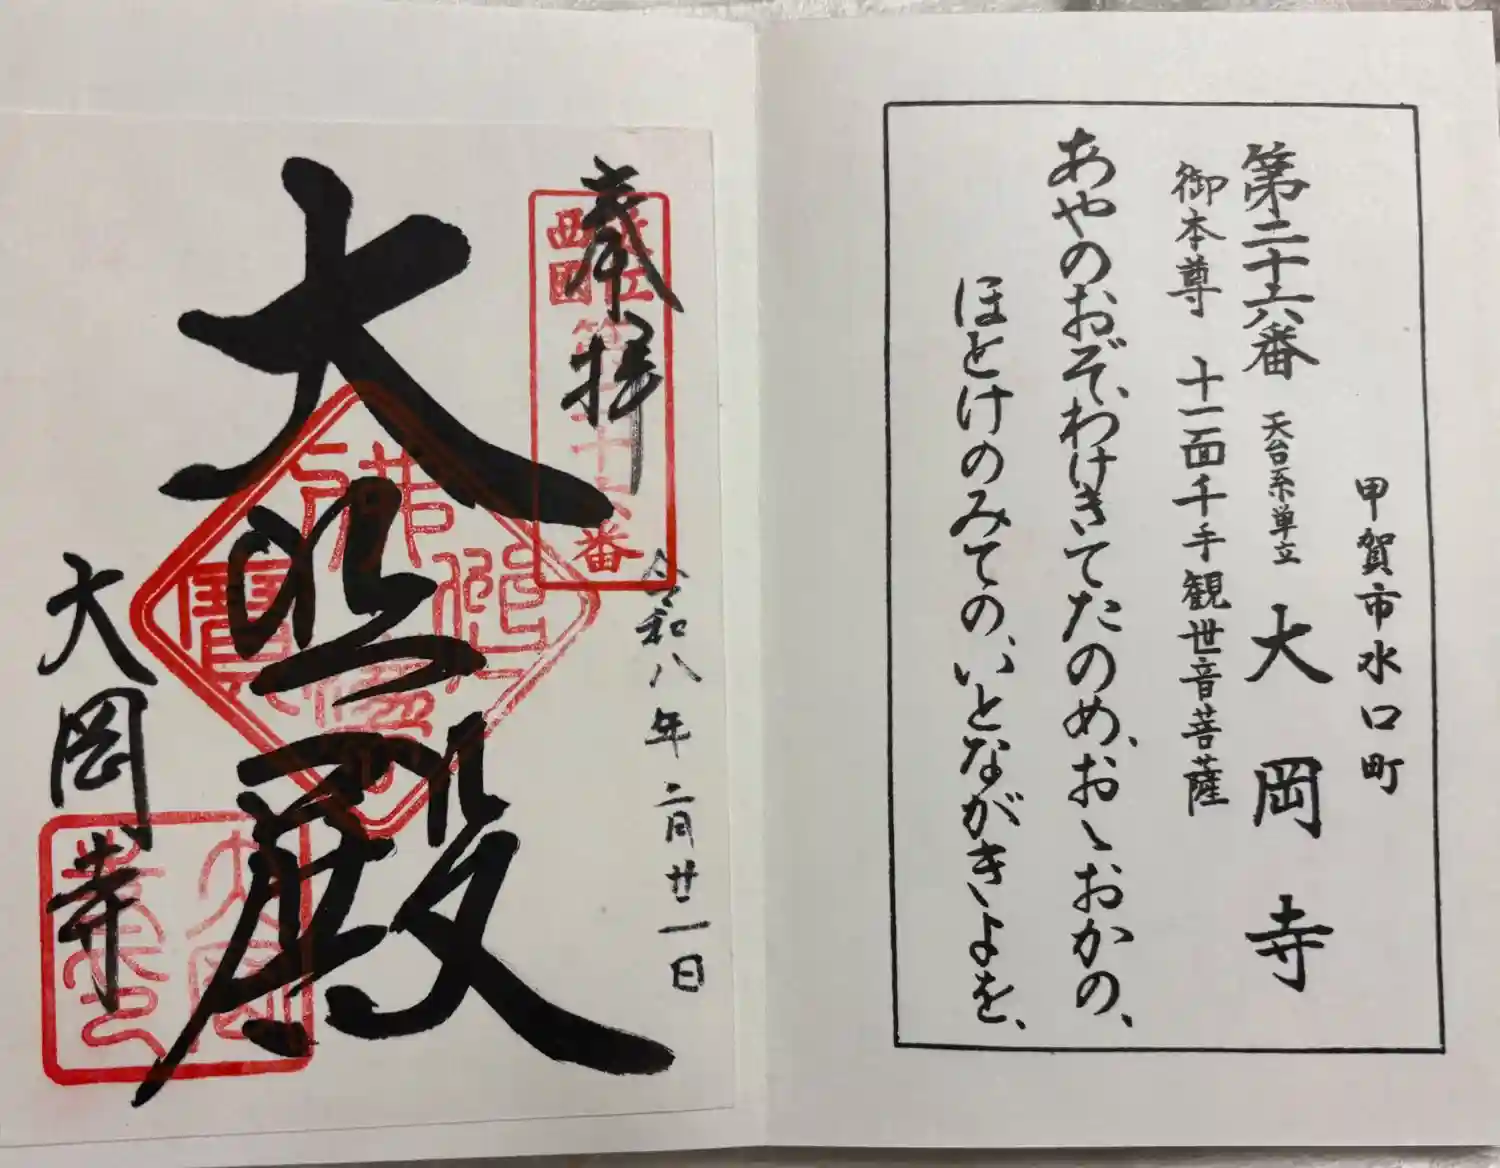 甲賀市水口町
第二十六番 天台系単立 大岡寺
御本尊 十一面千手観世音菩薩
あやのおぞ、わけきてたのめ、おゝおかの、
ほとけのみての、いとながきよを、
奉拝
西国
第二十六番
令和八年二月廿一日
大悲殿
佛法僧寳
大岡寺